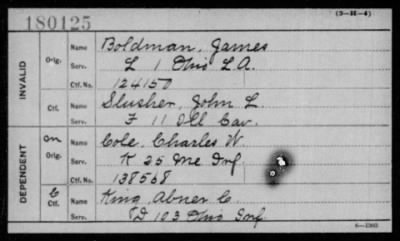 180125 (3-H-4)
INVALID
Orig. Name Boldman, James
Serv. L 1 Ohio L.A.
Ctf. No. 124150
Ctf. Name Slusher, John L.
Serv. F 11 Ill Cav.
DEPENDENT
On Orig. Name Cole, Charles W.
Serv. K 25 Me Inf
Ctf. No. 138568
C Ctf. Name King, Abner C.
Serv. D 103 Ohio Inf